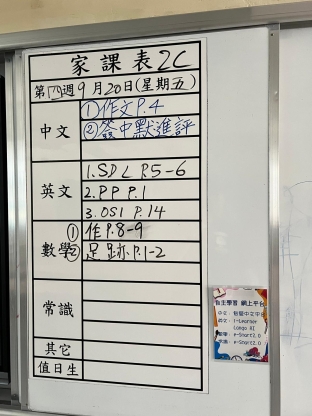 家課表2C
第四週9月20日(星期五)
中文
①作文P.4
②簽中默進評
英文
1.SDL P.5-6
2.PP P.1
3.OSI P.14
數學
①作P.8-9
②足跡P.1-2
常識
其它
值日生
自主學習 網上平台
i-Learner
e-Smart2.0
e-Smart2.0